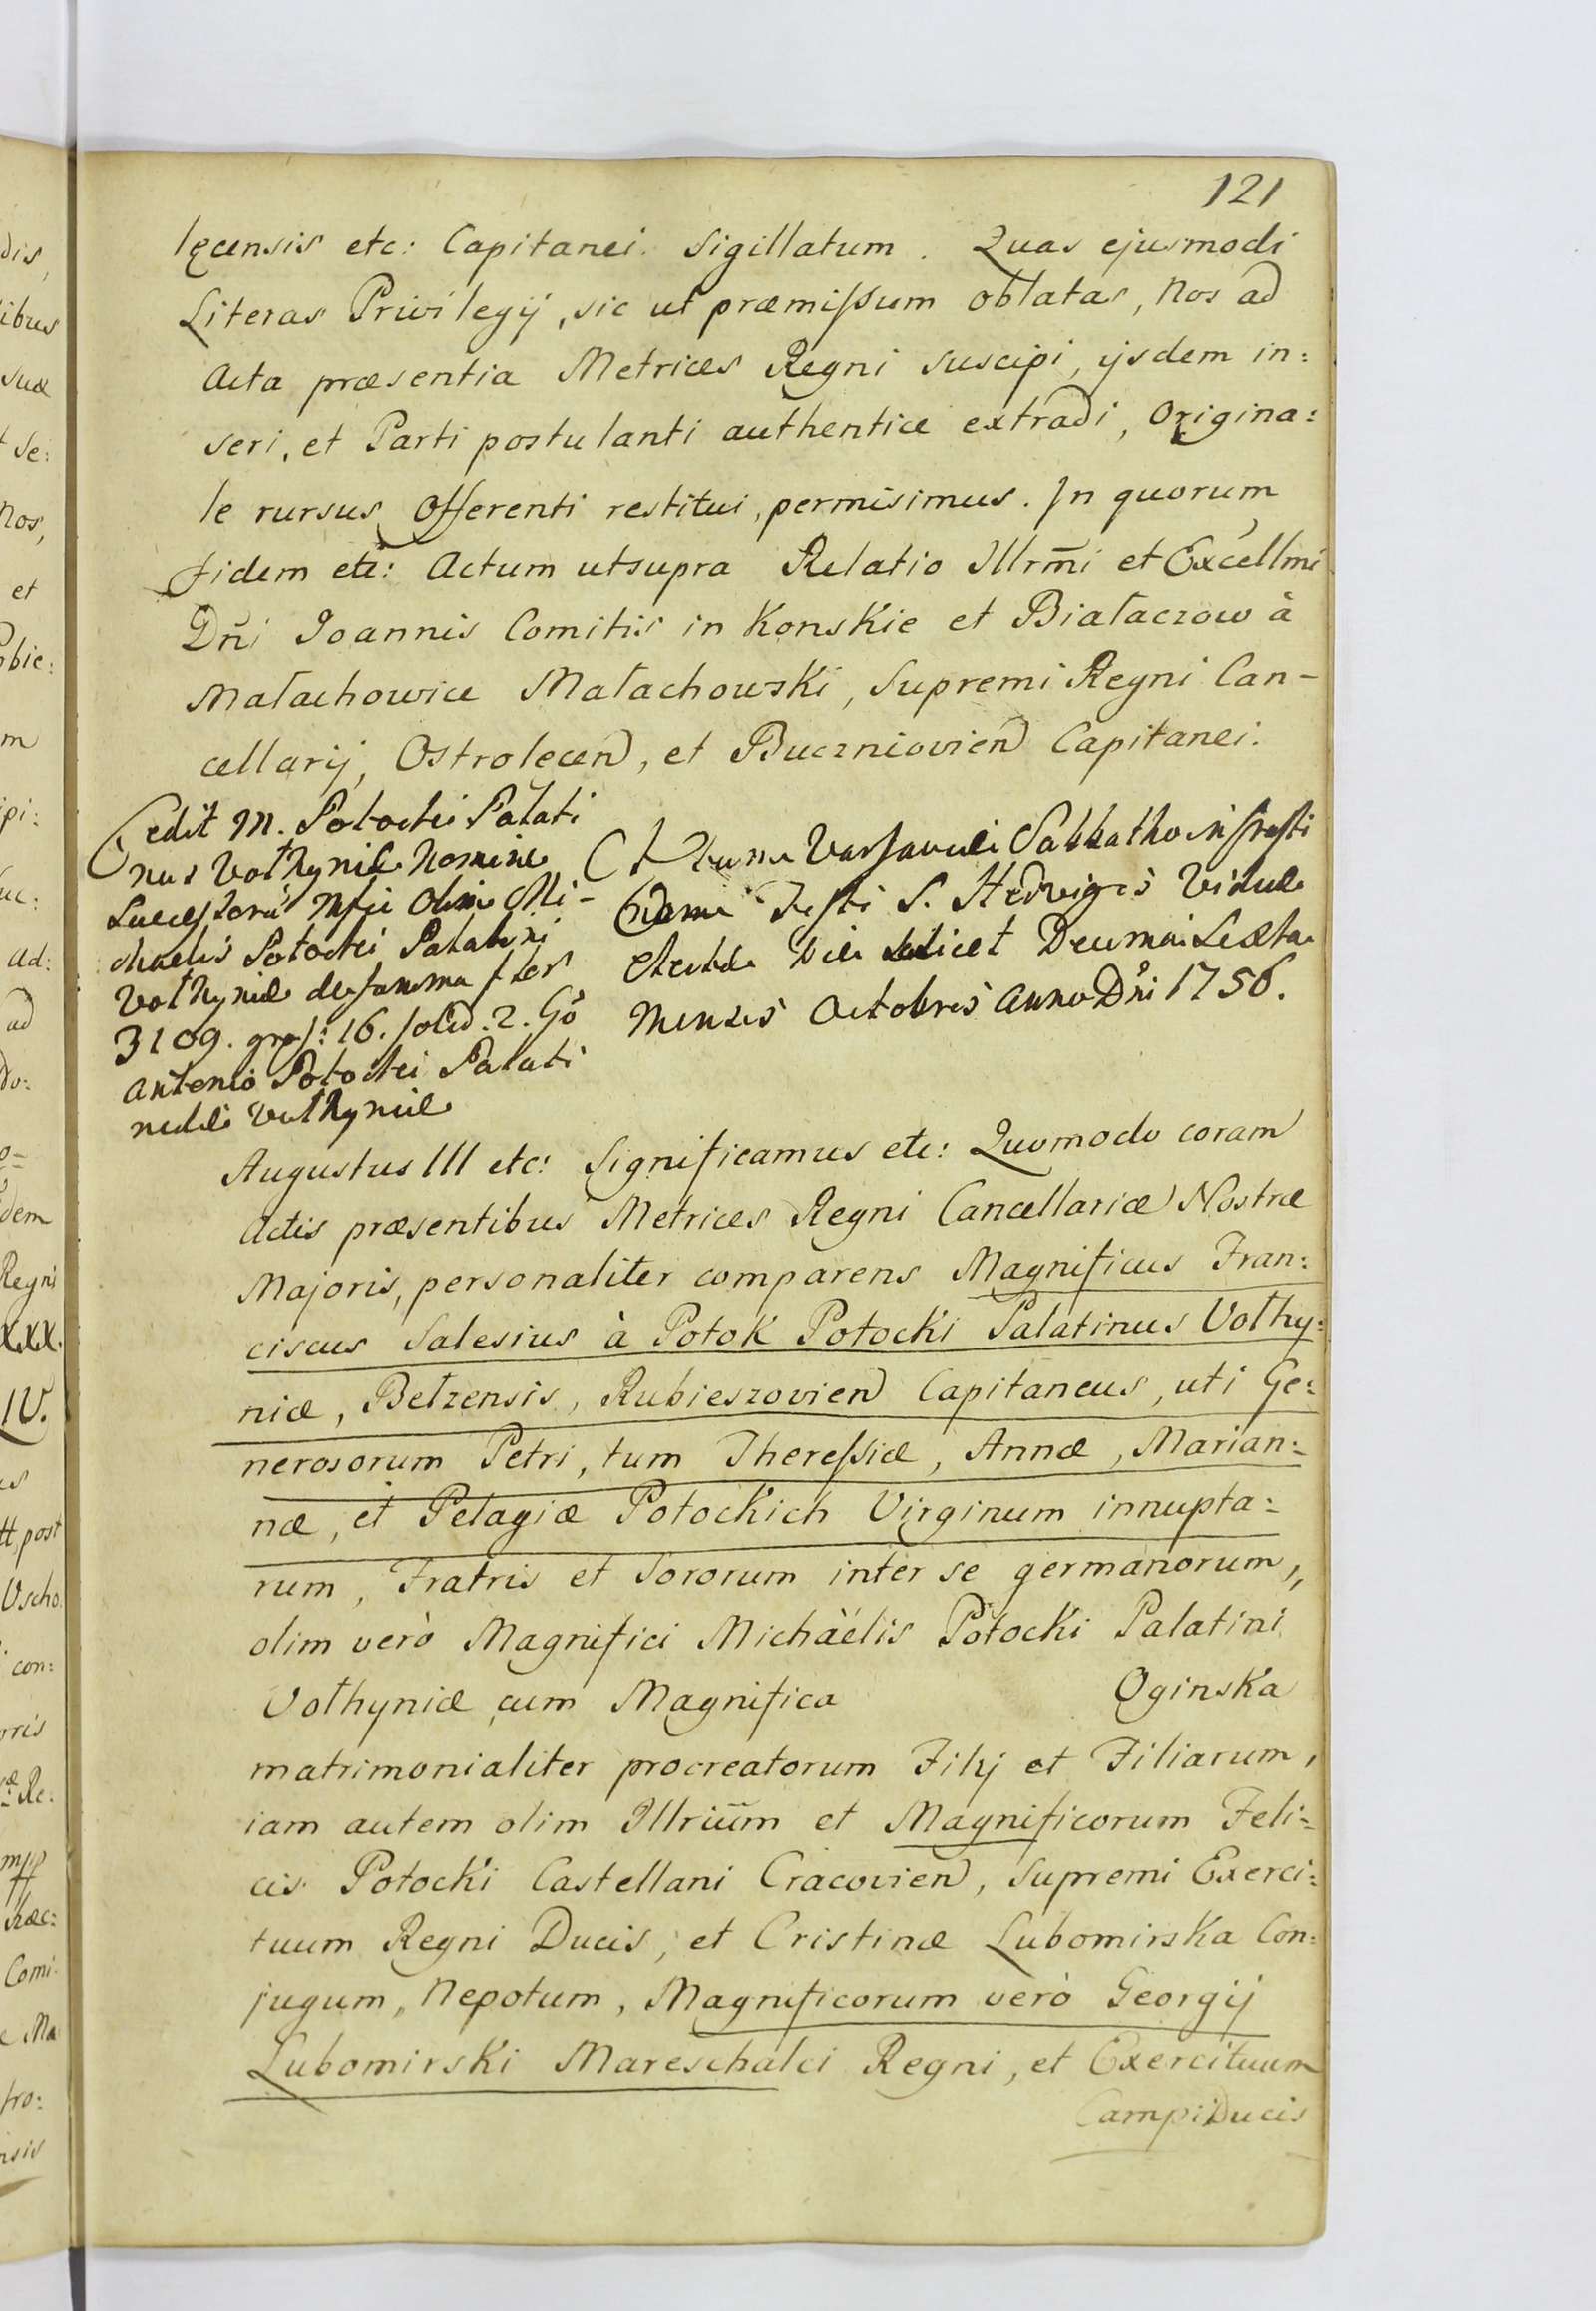 121
lęcensis etc: Capitanei. Sigillatum. Quas ejusmodi
Literas Privilegij, sic ut præmissum oblatas, Nos ad
Acta præsentia Metrices Regni suscipi, ijsdem in:
seri, et Parti postulanti authentice extradi, Origina:
le rursus Offerenti restitui, permisimus. In quorum
fidem etc: Actum utsupra Relatio Illrm̃i et Excellmi
Dñi Joannis Comitis in Konskie et Białaczow à
Małachowice Małachowski, Supremi Regni Can-
cellarij, Ostrolecen, et Buczniovien Capitanei.
Cedit M. Potocki Palati
nus Vołhyniæ Nomine
Successorũ Mfci Olim Mi-
chaelis Potocki Palatini
Vołhyniæ de summa fler
3109. gros: 16. solid. 2. Gő
Antonio Potocki Palati
nidi Vołhyniæ
Actum Varsaviæ Sabbatho in Crasti
dem Festi S. Hedvigis Viduæ
Electæ Die scilicet Decima Sexta
Mensis Octobris Anno Dñi 1756.
Augustus III etc: Significamus etc: Quomodo coram
Actis præsentibus Metrices Regni Cancellariæ Nostræ
Majoris, personaliter comparens Magnificus Fran:
ciscus Salesius à Potok Potocki Palatinus Vołhy:
niæ, Bełzensis, Rubieszovien Capitaneus, uti Ge:
nerosorum Petri, tum Theressiæ, Annæ, Marian:
næ, et Pelagiæ Potockich Virginum innupta:
rum, Fratris et Sororum inter se germanorum,,
olim verò Magnifici Michaëlis Potocki Palatini
Vołhyniæ, cum Magnifica Oginska
matrimonialiter procreatorum Filij et Filiarum,
iam autem olim Illriũm et Magnificorum Feli:
cis Potocki Castellani Cracovien, Supremi Exerci:
tuum Regni Ducis, et Cristinæ Lubomirska Con:
jugum, Nepotum, Magnificorum verò Georgij
Lubomirski Mareschalci Regni, et Exercituum
Campi Ducis